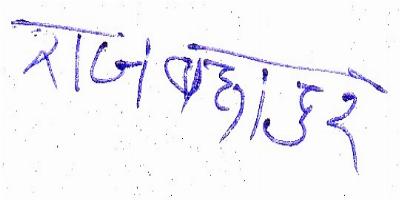 राजबहादुर